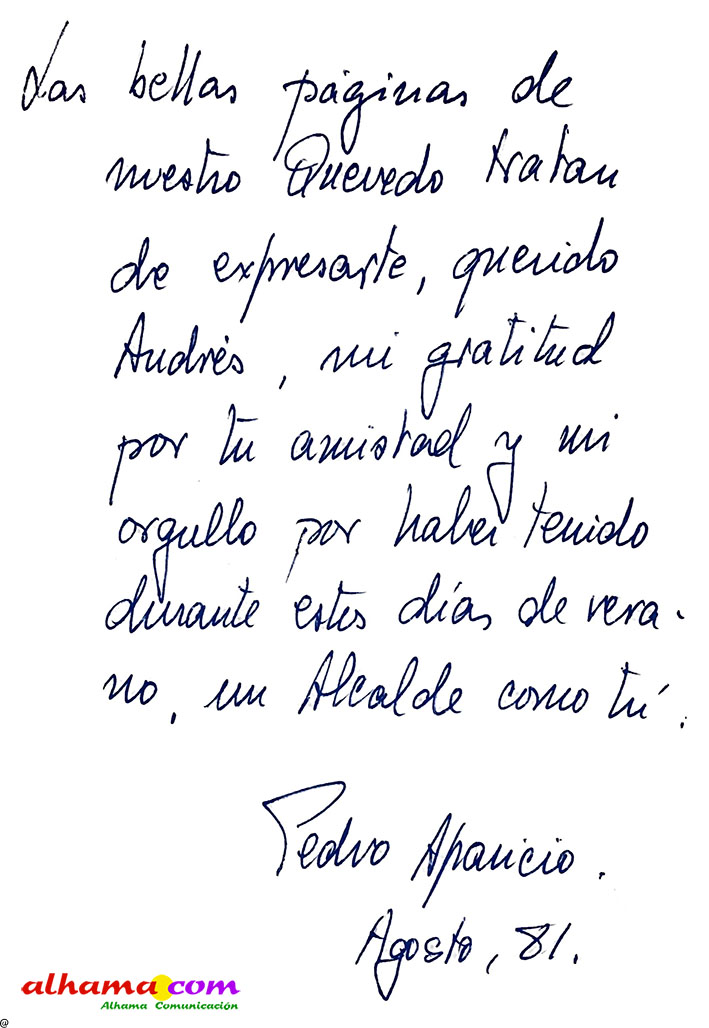 Las bellas páginas de
nuestro Quevedo tratan
de expresarte, querido
Andrés, mi gratitud
por tu amistad y mi
orgullo por haber tenido
durante estos días de vera-
no, un Alcalde como tú.
Pedro Aparicio.
Agosto, 81.
alhama.com
Alhama Comunicación
@